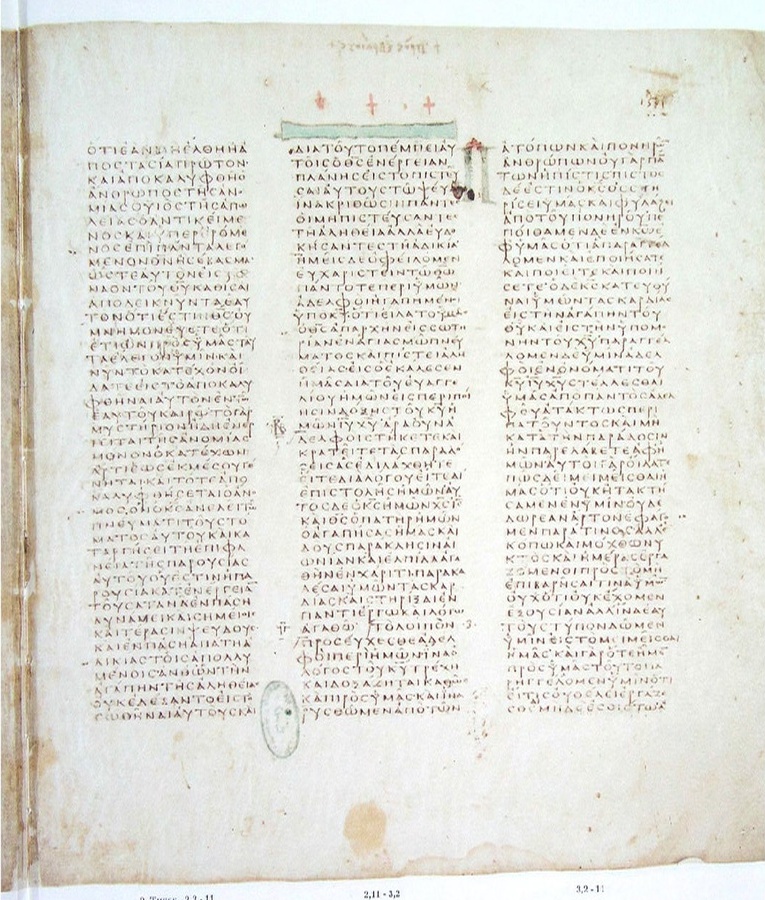 ΟΤΙΕΑΝΜΗΕΛΘΗΗΑ
ΠΟϹΤΑϹΙΑΠΡΩΤΟΝ
ΚΑΙΑΠΟΚΑΛΥΦΘΗΟ
ΑΝΘΡΩΠΟϹΤΗϹΑΝΟ
ΜΙΑϹΟΥΙΟϹΤΗϹΑΠΩ
ΛΕΙΑϹΟΑΝΤΙΚΕΙΜΕ
ΝΟϹΚΑΙΥΠΕΡΕΡΟΜΕ
ΝΟϹΕΠΙΠΑΝΤΑΛΕΓΟ
ΜΕΝΟΝΘΝΗϹΕΒΑϹΜΑ
ΩϹΤΕΑΥΤΟΝΕΙϹΤΟ
ΝΑΟΝΤΟΥΘΥΚΑΘΙϹΑΙ
ΑΠΟΔΕΙΚΝΥΝΤΑΕΑΥ
ΤΟΝΟΤΙΕϹΤΙΝΘϹΟΥ
ΜΝΗΜΟΝΕΥΕΤΕΟΤΙ
ΕΤΙΩΝΠΡΟϹΥΜΑϹΤΑΥ
ΤΑΕΛΕΓΟΝΥΜΙΝΚΑΙ
ΝΥΝΤΟΚΑΤΕΧΟΝΟΙ
ΔΑΤΕΕΙϹΤΟΑΠΟΚΑΛΥ
ΦΘΗΝΑΙΑΥΤΟΝΕΝΤΩ
ΕΑΥΤΟΥΚΑΙΡΩΤΟΓΑΡ
ΜΥϹΤΗΡΙΟΝΗΔΗΕΝΕΡ
ΓΕΙΤΑΙΤΗϹΑΝΟΜΙΑϹ
ΜΟΝΟΝΟΚΑΤΕΧΩΝ
ΑΡΤΙΕΩϹΕΚΜΕϹΟΥΓΕ
ΝΗΤΑΙΚΑΙΤΟΤΕΑΠΟ
ΚΑΛΥΦΘΗϹΕΤΑΙΟΑΝΟ
ΜΟϹΟΝΟΚϹΑΝΕΛΕΙΤΩ
ΠΝΕΥΜΑΤΙΤΟΥϹΤΟ
ΜΑΤΟϹΑΥΤΟΥΚΑΙΚΑ
ΤΑΡΓΗϹΕΙΤΗΕΠΙΦΑ
ΝΕΙΑΤΗϹΠΑΡΟΥϹΙΑϹ
ΑΥΤΟΥΟΥΕϹΤΙΝΗΠΑ
ΡΟΥϹΙΑΚΑΤΕΝΕΡΓΕΙΑ
ΤΟΥϹΑΤΑΝΑΕΝΠΑϹΗ
ΔΥΝΑΜΕΙΚΑΙϹΗΜΕΙΟΙϹ
ΚΑΙΤΕΡΑϹΙΝΨΕΥΔΟΥϹ
ΚΑΙΕΝΠΑϹΗΑΠΑΤΗΑ
ΔΙΚΙΑϹΤΟΙϹΑΠΟΛΛΥ
ΜΕΝΟΙϹΑΝΘΩΝΤΗΝ
ΑΓΑΠΗΝΤΗϹΑΛΗΘΕΙΑϹ
ΟΥΚΕΔΕΞΑΝΤΟΕΙϹΤΟ
ϹΩΘΗΝΑΙΑΥΤΟΥϹΚΑΙ
ΔΙΑΤΟΥΤΟΠΕΜΠΕΙΑΥ
ΤΟΙϹΟΘϹΕΝΕΡΓΕΙΑΝ
ΠΛΑΝΗϹΕΙϹΤΟΠΙϹΤΕΥ
ϹΑΙΑΥΤΟΥϹΤΩΨΕΥΔΕΙ
ΙΝΑΚΡΙΘΩϹΙΝΠΑΝΤΕϹ
ΟΙΜΗΠΙϹΤΕΥϹΑΝΤΕϹ
ΤΗΑΛΗΘΕΙΑΑΛΛΑΕΥΔΟ
ΚΗϹΑΝΤΕϹΤΗΑΔΙΚΙΑ
ΗΜΕΙϹΔΕΟΦΕΙΛΟΜΕΝ
ΕΥΧΑΡΙϹΤΕΙΝΤΩΘΩ
ΠΑΝΤΟΤΕΠΕΡΙΥΜΩΝ
ΑΔΕΛΦΟΙΗΓΑΠΗΜΕΝΟΙ
ΥΠΟΚΥΟΤΙΕΙΛΑΤΟΥΜΑϹ
ΟΘϹΑΠΑΡΧΗΝΕΙϹϹΩΤΗ
ΡΙΑΝΕΝΑΓΙΑϹΜΩΠΝΕΥ
ΜΑΤΟϹΚΑΙΠΙϹΤΕΙΑΛΗ
ΘΕΙΑϹΕΙϹΟΕΚΑΛΕϹΕΝ
ΗΜΑϹΔΙΑΤΟΥΕΥΑΓΓΕ
ΛΙΟΥΗΜΩΝΕΙϹΠΕΡΙΠΟΙ
ΗϹΙΝΔΟΞΗϹΤΟΥΚΥΗ
ΜΩΝΙΥΧΥΑΡΑΟΥΝΑ
ΔΕΛΦΟΙϹΤΗΚΕΤΕΚΑΙ
ΚΡΑΤΕΙΤΕΤΑϹΠΑΡΑΔΟ
ϹΕΙϹΑϹΕΔΙΔΑΧΘΗΤΕ
ΕΙΤΕΔΙΑΛΟΓΟΥΕΙΤΕΔΙ
ΕΠΙϹΤΟΛΗϹΗΜΩΝΑΥ
ΤΟϹΔΕΟΚϹΗΜΩΝΧϹΙϹ
ΚΑΙΘϹΟΠΑΤΗΡΗΜΩΝ
ΟΑΓΑΠΗϹΑϹΗΜΑϹΚΑΙ
ΔΟΥϹΠΑΡΑΚΛΗϹΙΝΑΙ
ΩΝΙΑΝΚΑΙΕΛΠΙΔΑΑΓΑ
ΘΗΝΕΝΧΑΡΙΤΙΠΑΡΑΚΑ
ΛΕϹΑΙΥΜΩΝΤΑϹΚΑΡ
ΔΙΑϹΚΑΙϹΤΗΡΙΞΑΙΕΝ
ΠΑΝΤΙΕΡΓΩΚΑΙΛΟΓΩ
ΑΓΑΘΩΤΟΛΟΙΠΟΝ
ΠΡΟϹΕΥΧΕϹΘΕΑΔΕΛ
ΦΟΙΠΕΡΙΗΜΩΝΙΝΑΟ
ΛΟΓΟϹΤΟΥΚΥΤΡΕΧΗ
ΚΑΙΔΟΞΑΖΗΤΑΙΚΑΘΩϹ
ΚΑΙΠΡΟϹΥΜΑϹΚΑΙΙΝΑ
ΡΥϹΘΩΜΕΝΑΠΟΤΩΝ
ΑΤΟΠΩΝΚΑΙΠΟΝΗΡΩ
ΑΝΘΡΩΠΩΝΟΥΓΑΡΠΑ
ΤΩΝΗΠΙϹΤΙϹΠΙϹΤΟϹ
ΔΕΕϹΤΙΝΟΚϹΟϹϹΤΗ
ΡΙϹΕΙΥΜΑϹΚΑΙΦΥΛΑΞΕΙ
ΑΠΟΤΟΥΠΟΝΗΡΟΥΠΕ
ΠΟΙΘΑΜΕΝΔΕΕΝΚΩΕ
ΦΥΜΑϹΟΤΙΑΠΑΡΑΓΓΕΛ
ΛΟΜΕΝΚΑΙΕΠΟΙΗϹΑΤΕ
ΚΑΙΠΟΙΕΙΤΕΚΑΙΠΟΙΗ
ϹΕΤΕΟΔΕΚϹΚΑΤΕΥΘΥ
ΝΑΙΥΜΩΝΤΑϹΚΑΡΔΙΑϹ
ΕΙϹΤΗΝΑΓΑΠΗΝΤΟΥ
ΘΥΚΑΙΕΙϹΤΗΝΥΠΟΜΟ
ΝΗΝΤΟΥΧΥΠΑΡΑΓΓΕΛ
ΛΟΜΕΝΔΕΥΜΙΝΑΔΕΛ
ΦΟΙΕΝΟΝΟΜΑΤΙΤΟΥ
ΚΥΙΥΧΥϹΤΕΛΛΕϹΘΑΙ
ΥΜΑϹΑΠΟΠΑΝΤΟϹΑΔΕΛ
ΦΟΥΑΤΑΚΤΩϹΠΕΡΙ
ΠΑΤΟΥΝΤΟϹΚΑΙΜΗ
ΚΑΤΑΤΗΝΠΑΡΑΔΟϹΙΝ
ΗΝΠΑΡΕΛΑΒΕΤΕΑΦΗ
ΜΩΝΑΥΤΟΙΓΑΡΟΙΔΑΤΕ
ΠΩϹΔΕΙΜΙΜΕΙϹΘΑΙΗ
ΜΑϹΟΤΙΟΥΚΗΤΑΚΤΗ
ϹΑΜΕΝΕΝΥΜΙΝΟΥΔΕ
ΔΩΡΕΑΝΑΡΤΟΝΕΦΑΓΟ
ΜΕΝΠΑΡΑΤΙΝΟϹΑΛΛΕ
ΚΟΠΩΚΑΙΜΟΧΘΩΝΥ
ΚΤΟϹΚΑΙΗΜΕΡΑϹΕΡΓΑ
ΖΟΜΕΝΟΙΠΡΟϹΤΟΜΗ
ΕΠΙΒΑΡΗϹΑΙΤΙΝΑΥΜΩ
ΟΥΧΟΤΙΟΥΚΕΧΟΜΕΝ
ΕΞΟΥϹΙΑΝΑΛΛΙΝΑΕΑΥ
ΤΟΥϹΤΥΠΟΝΔΩΜΕΝ
ΥΜΙΝΕΙϹΤΟΜΙΜΕΙϹΘΑΙ
ΗΜΑϹΚΑΙΓΑΡΟΤΕΗΜΕ
ΠΡΟϹΥΜΑϹΤΟΥΤΟΠΑ
ΡΗΓΓΕΛΛΟΜΕΝΥΜΙΝΟΤΙ
ΕΙΤΙϹΟΥΘΕΛΕΙΕΡΓΑΖΕ
ϹΘΑΙΜΗΔΕΕϹΘΙΕΤΩΑ
2,11 - 3,2
3,2 - 11